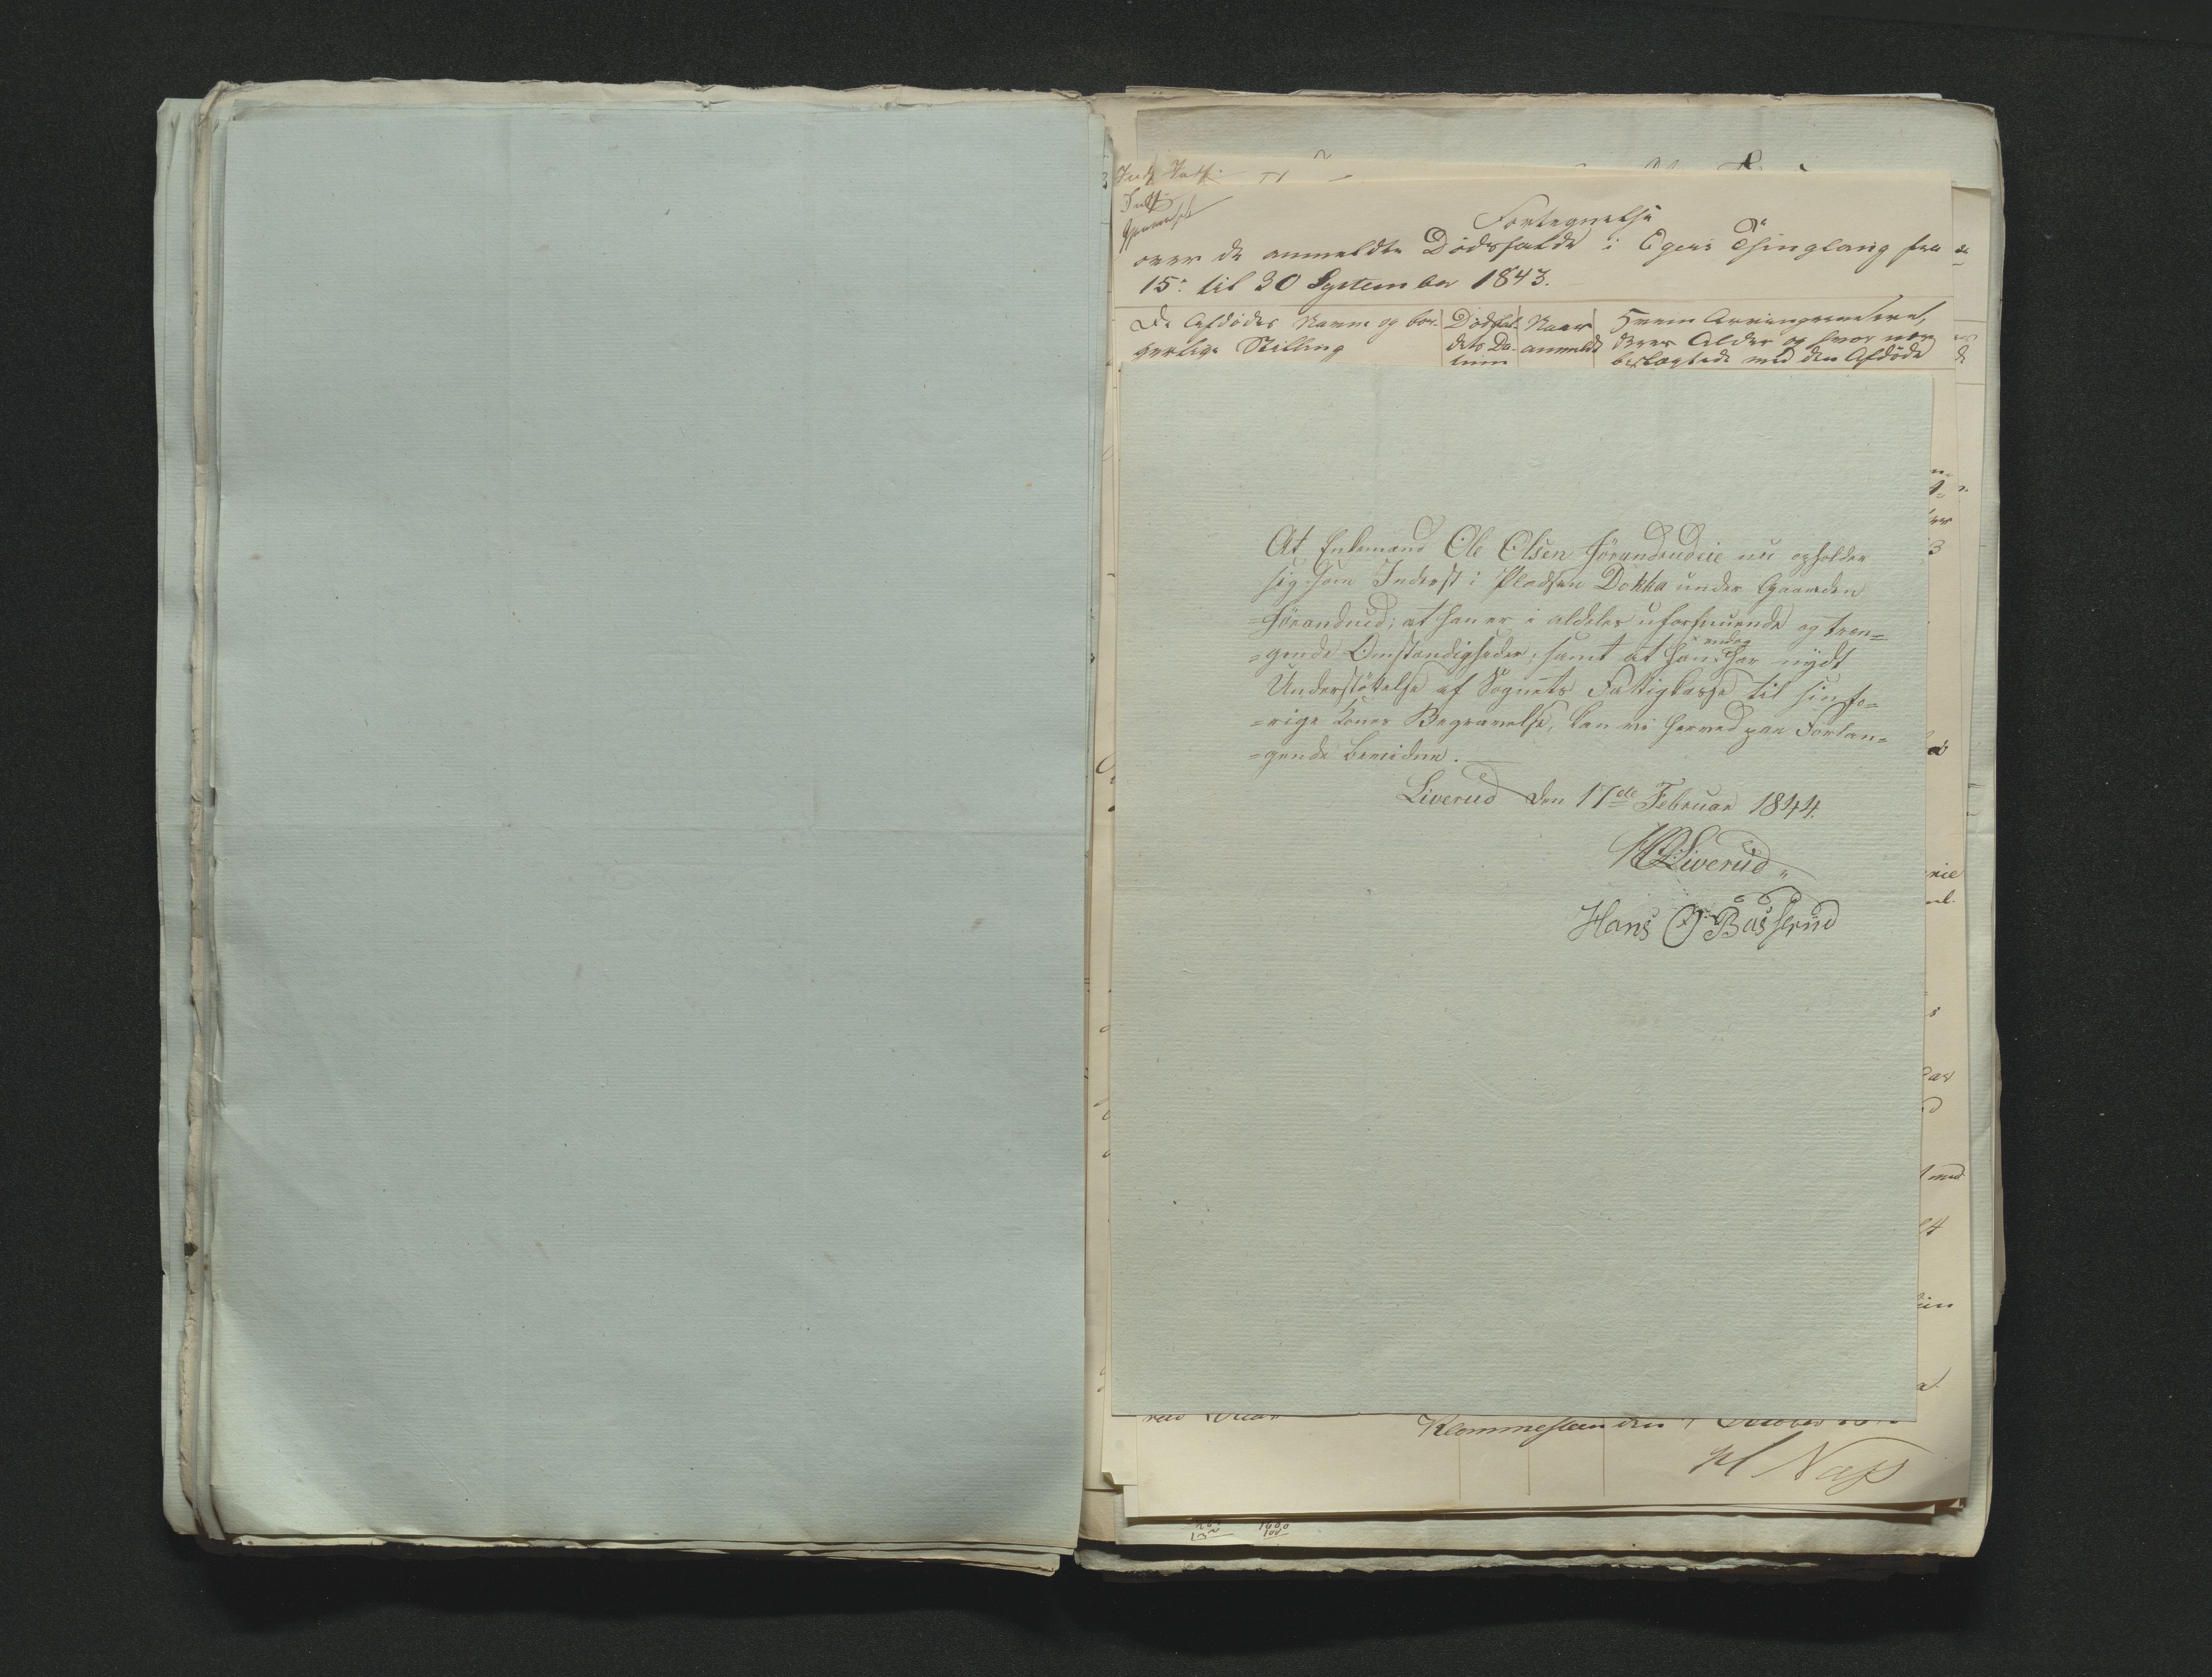 Fortegnelse
over de anmeldte Dödsfalde i Egers Thinglaug fra
15: til 30 September 1843.
De Afdödes Navne og bor-
gerlige Stilling
Dödsfal-
dets Da-
tum
Naar
anmeldt
Hvem Arvingerne ere,
deres Alder og hvor nær
beslægtede med den Afdöde
At Enkemand Ole Olsen Jörandrudeie nu opholder
sig som Inderst i Pladsen Dokka under Gaarden
Jörandrud; at han er i aldeles uformuende og træn=
=gende Omstændigheder, samt at han × har nydt
× endog
Understöttelse af Sognets Fattigkasse til sin fo=
=rige Kones Begravelse, kan vi herved paa Forlan=
=gende bevidne.
Liverud den 17de Februar 1844.
Liverud
Hans O Basserud
Klommesteen den October
Næss